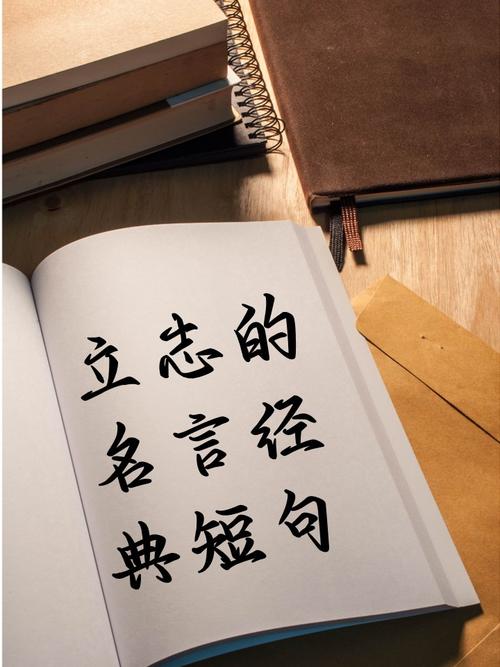 立志的
名言经
典短句